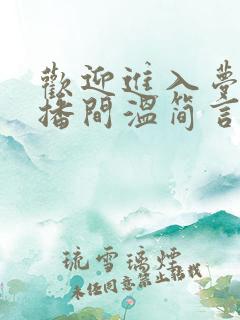 歡迎進入夢
播間溫简言
琉雪璃煙
未经同意禁止转载